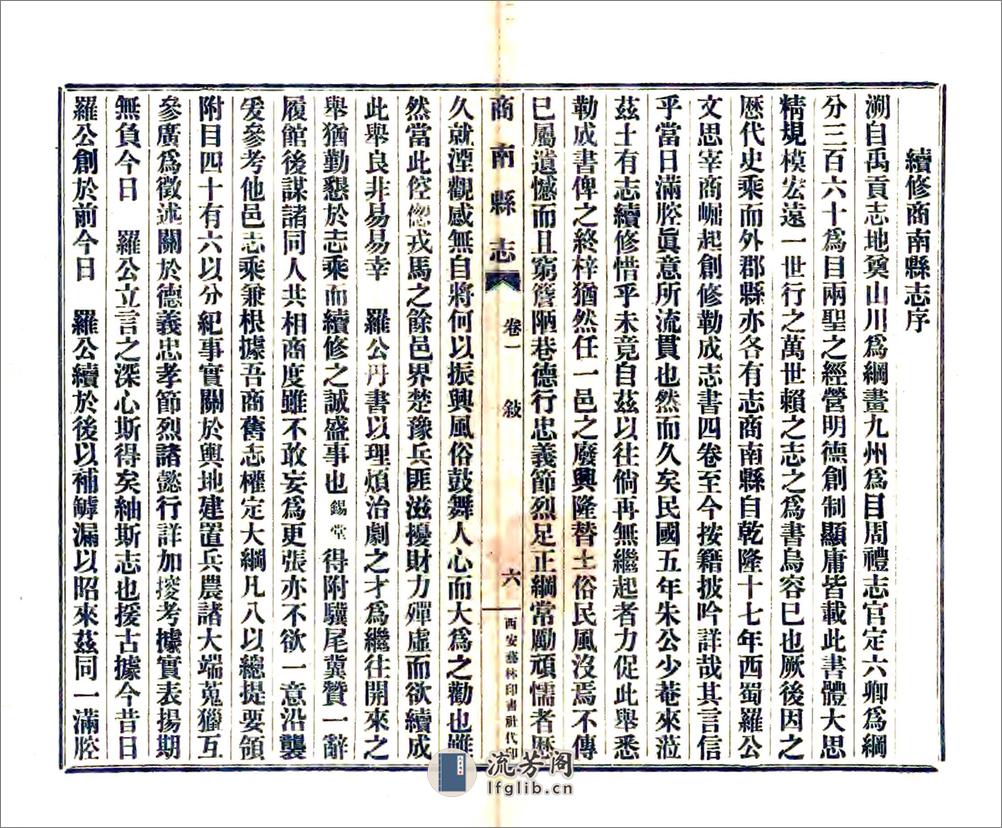 續修商南縣志序
溯自禹貢志地奠山川爲綱畫九州爲目周禮志官定六卿爲綱
分三百六十爲目兩聖之經營明德創制顯庸皆載此書體大思
精規模宏遠一世行之萬世賴之志之爲書烏容已也厥後因之
歷代史乘而外郡縣亦各有志商南縣自乾隆十七年西蜀羅公
文思宰商崛起創修勒成志書四卷至今按籍披吟詳哉其言信
乎當日滿腔眞意所流貫也然而久矣民國五年朱公少菴來涖
茲土有志續修惜乎未竟自茲以往倘再無繼起者力促此舉悉
勒成書俾之終梓猶然任一邑之廢興隆替土俗民風沒焉不傳
已屬遺憾而且窮簷陋巷德行忠義節烈足正綱常勵頑懦者歷
商南縣志
卷一
敍
六
西安藝林印書社代印
久就湮觀感無自將何以振興風俗鼓舞人心而大爲之勸也雖
然當此倥偬戎馬之餘邑界楚豫兵匪滋擾財力殫虛而欲續成
此舉良非易易幸 羅公丹書以理煩治劇之才爲繼往開來之
舉猶勤懇於志乘而續修之誠盛事也錫堂得附驥尾冀贊一辭
履館後謀諸同人共相商度雖不敢妄爲更張亦不欲一意沿襲
爰參考他邑志乘兼根據吾商舊志權定大綱凡八以總提要領
附目四十有六以分紀事實關於輿地建置兵農諸大端蒐獵互
參廣爲徵述關於德義忠孝節烈諸懿行詳加搜考據實表揚期
無負今日 羅公立言之深心斯得矣紬斯志也援古據今昔日
羅公創於前今日 羅公續於後以補罅漏以昭來茲同一滿腔
流芳阁
lfglib.cn